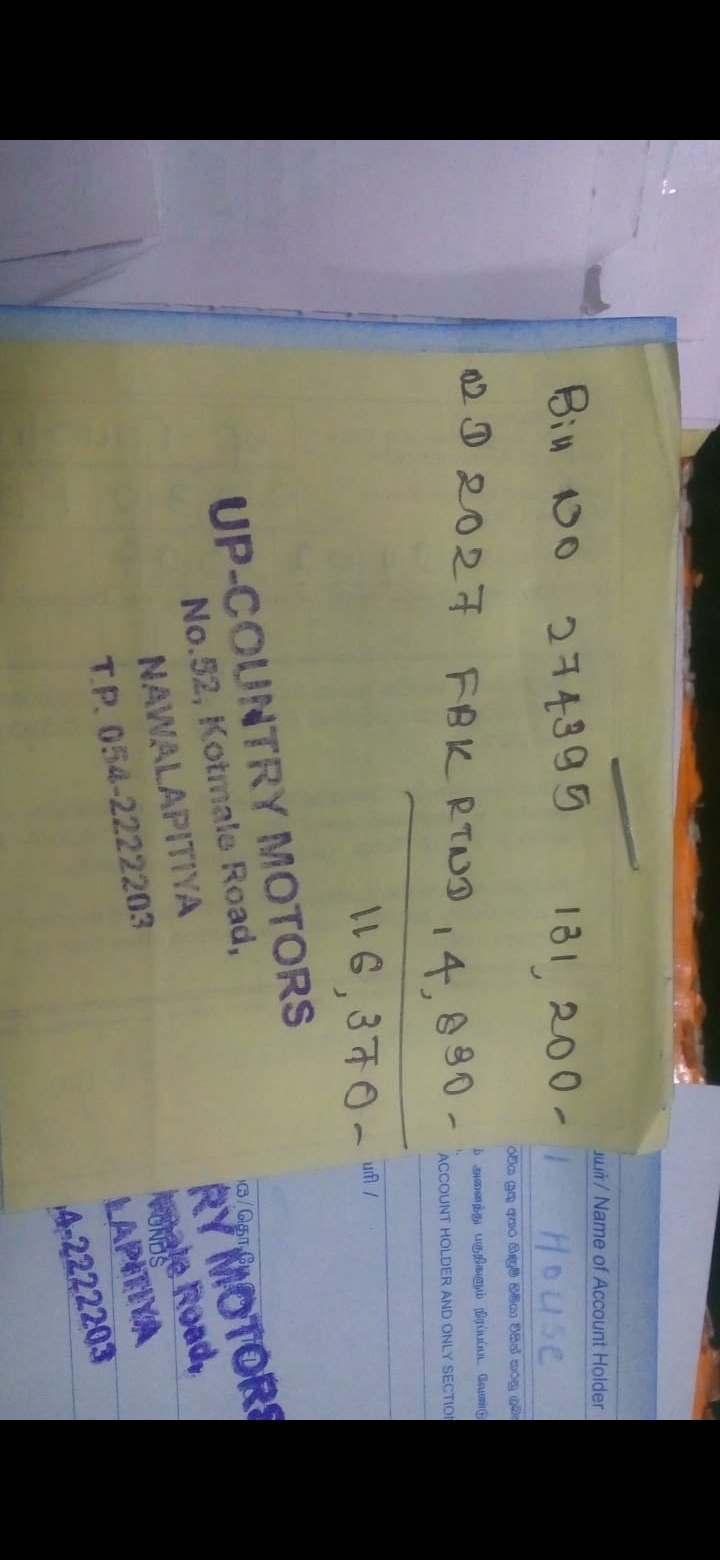 Bill NO 274395 131,200-
WD 2027 FBK RTND 14,830-
116,370-
UP-COUNTRY MOTORS
No.52, Kotmale Road,
NAWALAPITIYA
T.P. 054-2222203
/ Name of Account Holder
House
அனைத்து பகுதிகளும் நிரப்பப்பட வேண்டு
ACCOUNT HOLDER AND ONLY SECTION
RY MOTORS
male Road,
LAPITIYA
4-2222203